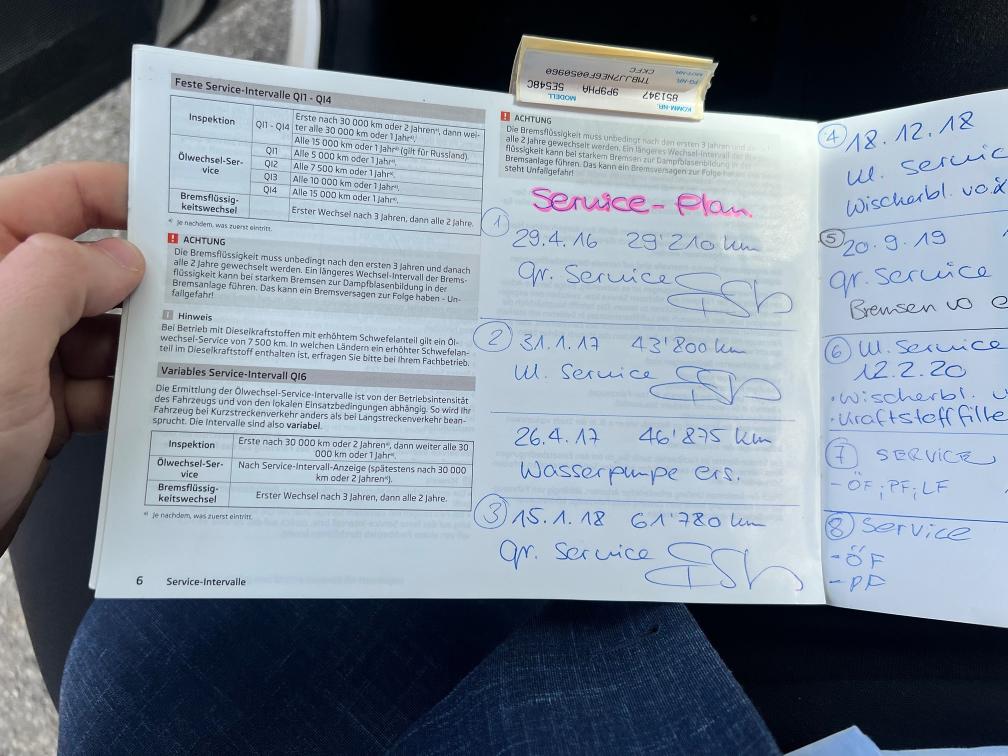 Feste Service-Intervalle QI1 - QI4
Inspektion
QI1 - QI4
Erste nach 30 000 km oder 2 Jahren a), dann wei-
ter alle 30 000 km oder 1 Jahr a).
Ölwechsel-Ser-
vice
Alle 15 000 km oder 1 Jahr a) (gilt für Russland).
QI1 Alle 5 000 km oder 1 Jahr a).
QI2 Alle 7 500 km oder 1 Jahr a).
QI3 Alle 10 000 km oder 1 Jahr a).
QI4 Alle 15 000 km oder 1 Jahr a).
Bremsflüssig-
keitswechsel
Erster Wechsel nach 3 Jahren, dann alle 2 Jahre.
a) Je nachdem, was zuerst eintritt.
! ACHTUNG
Die Bremsflüssigkeit muss unbedingt nach den ersten 3 Jahren und danach
alle 2 Jahre gewechselt werden. Ein längeres Wechsel-Intervall der Brems-
flüssigkeit kann bei starkem Bremsen zur Dampfblasenbildung in der
Bremsanlage führen. Das kann ein Bremsversagen zur Folge haben - Un-
fallgefahr!
Hinweis
Bei Betrieb mit Dieselkraftstoffen mit erhöhtem Schwefelanteil gilt ein Öl-
wechsel-Service von 7 500 km. In welchen Ländern ein erhöhter Schwefelan-
teil im Dieselkraftstoff enthalten ist, erfragen Sie bitte bei Ihrem Fachbetrieb.
Variables Service-Intervall QI6
Die Ermittlung der Ölwechsel-Service-Intervalle ist von der Betriebsintensität
des Fahrzeugs und von den lokalen Einsatzbedingungen abhängig. So wird Ihr
Fahrzeug bei Kurzstreckenverkehr anders als bei Langstreckenverkehr bean-
sprucht. Die Intervalle sind also variabel.
Inspektion
Erste nach 30 000 km oder 2 Jahren a), dann weiter alle 30
000 km oder 1 Jahr a).
Ölwechsel-Ser-
vice
Nach Service-Intervall-Anzeige (spätestens nach 30 000
km oder 2 Jahren a)).
Bremsflüssig-
keitswechsel
Erster Wechsel nach 3 Jahren, dann alle 2 Jahre.
a) Je nachdem, was zuerst eintritt.
6 Service-Intervalle
KOMM-NR.
851347
FG-NR.
TMBJJ7NE6F0050960
MOT-NR.
CKFC
MODELL
5E54BC
9P9PHA
! ACHTUNG
Die Bremsflüssigkeit muss unbedingt nach den ersten 3 Jahren und
alle 2 Jahre gewechselt werden. Ein längeres Wechsel-Intervall der
flüssigkeit kann bei starkem Bremsen zur Dampfblasenbildung in der
Bremsanlage führen. Das kann ein Bremsversagen zur Folge haben
steht Unfallgefahr!
Service-Plan.
1
29.4.16 29'210 km
gr. Service
2 31.1.17 43'800 km
kl. Service
26.4.17 46'875 km
Wasserpumpe ers.
3 15.1.18 61'780 km
gr. Service
4 18.12.18
kl. Servic
Wischerbl. vo.&
5 20.9.19
gr. Service
Bremsen vo
6 kl. Service
12.2.20
• Wischerbl.
• Kraftstofffilte
7 SERVICE
- ÖF; PF; LF
8 Service
- ÖF
- PF